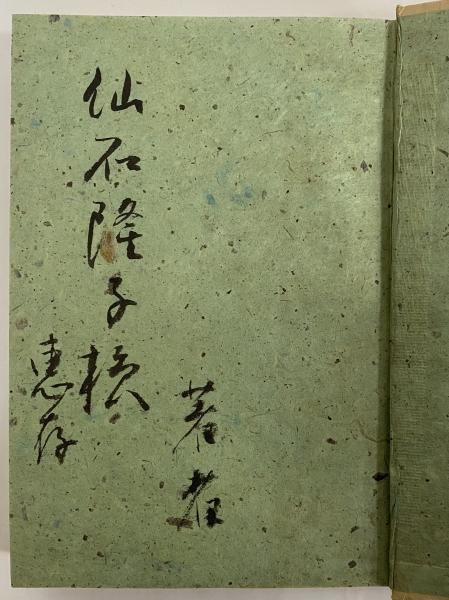 著者
仙石隆子様
恵存